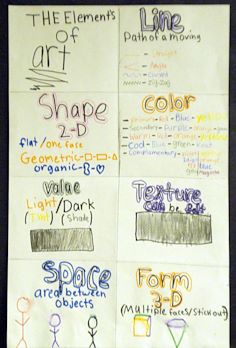 THE Element's
of
art
Line
Path of a moving
Straight
Angle
Curved
Zig-Zag
Shape
2-D
flat/one face
Geometric-
organic-
COLOR
Primary-Red-Blue-yellow
Secondary-Purple-orange-green
Warm-Red-orange-yellow
Cool-Blue-green-
Complementary-
Value
Light/Dark
(Tint) (Shade)
Texture
Can be Felt
Space
area between
objects
Form
3-D
(Multiple faces/Stick out)